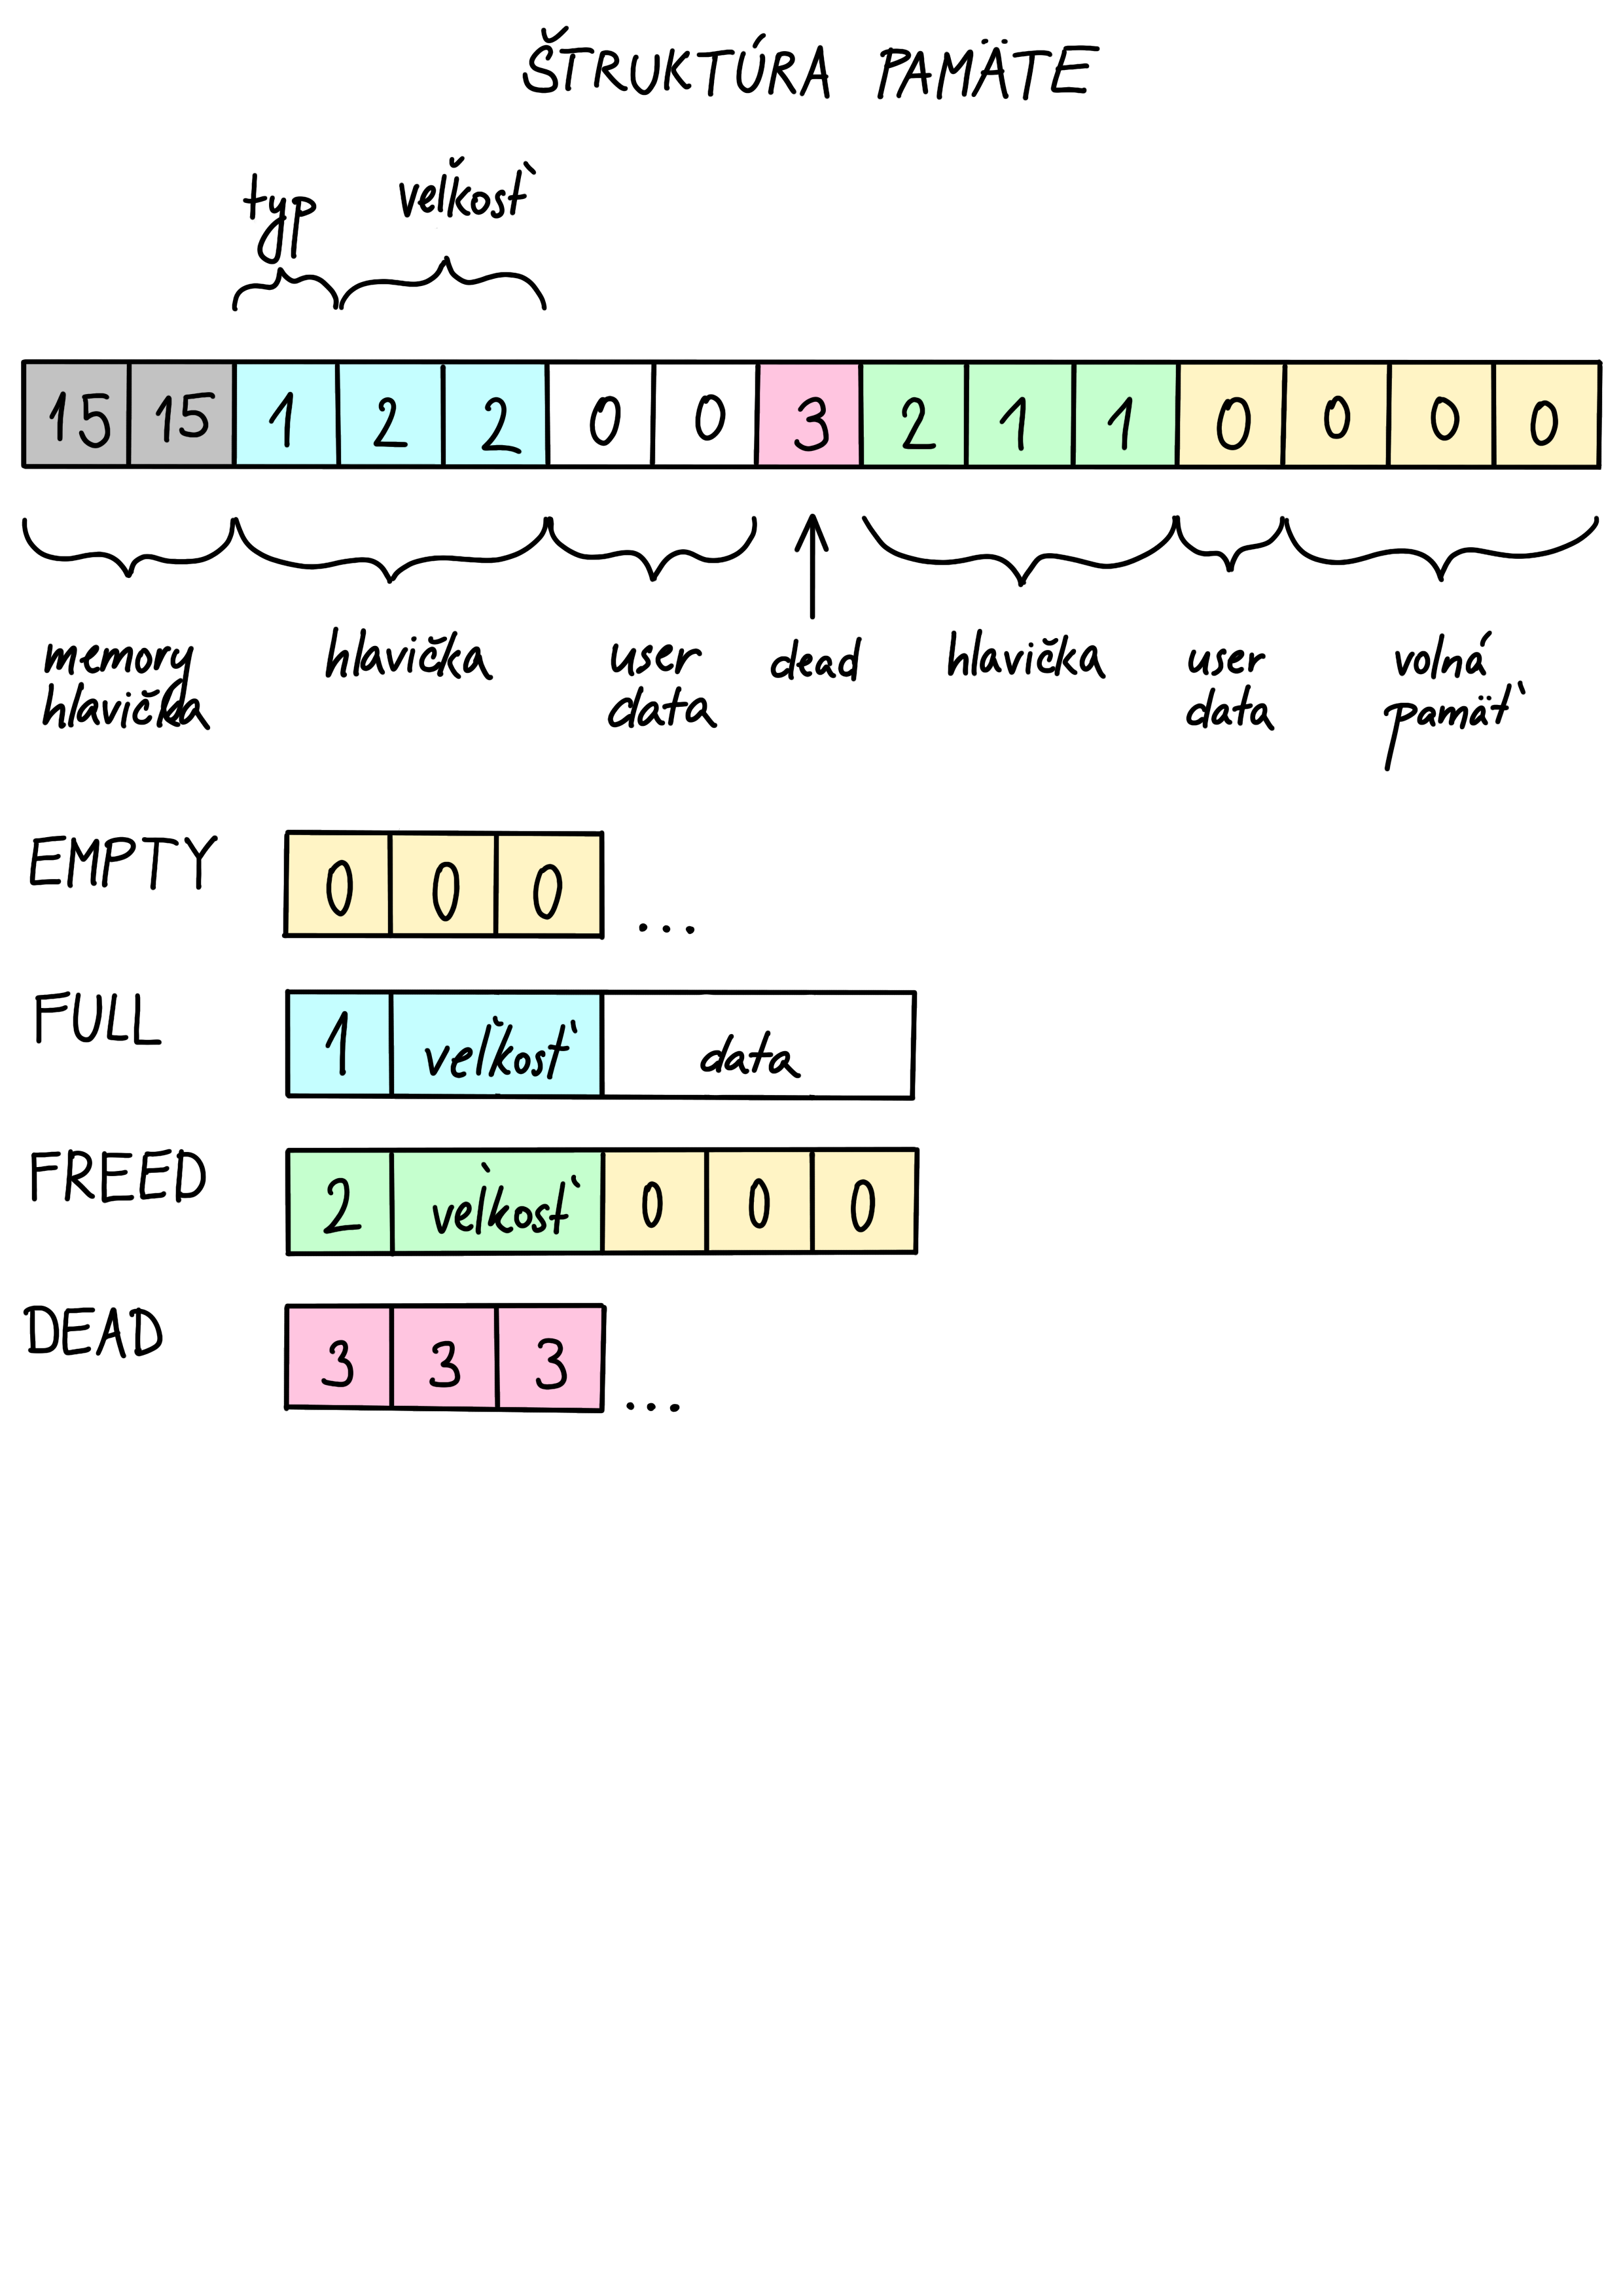 ŠTRUKTÚRA PAMÄTE
typ veľkosť
15 15 1 2 2 0 0 3 2 1 1 0 0 0 0
memory hlavička user dead hlavička user volná
hlavička data data pamäť
EMPTY 0 0 0 ...
FULL 1 veľkosť data
FREED 2 veľkosť 0 0 0
DEAD 3 3 3 ...